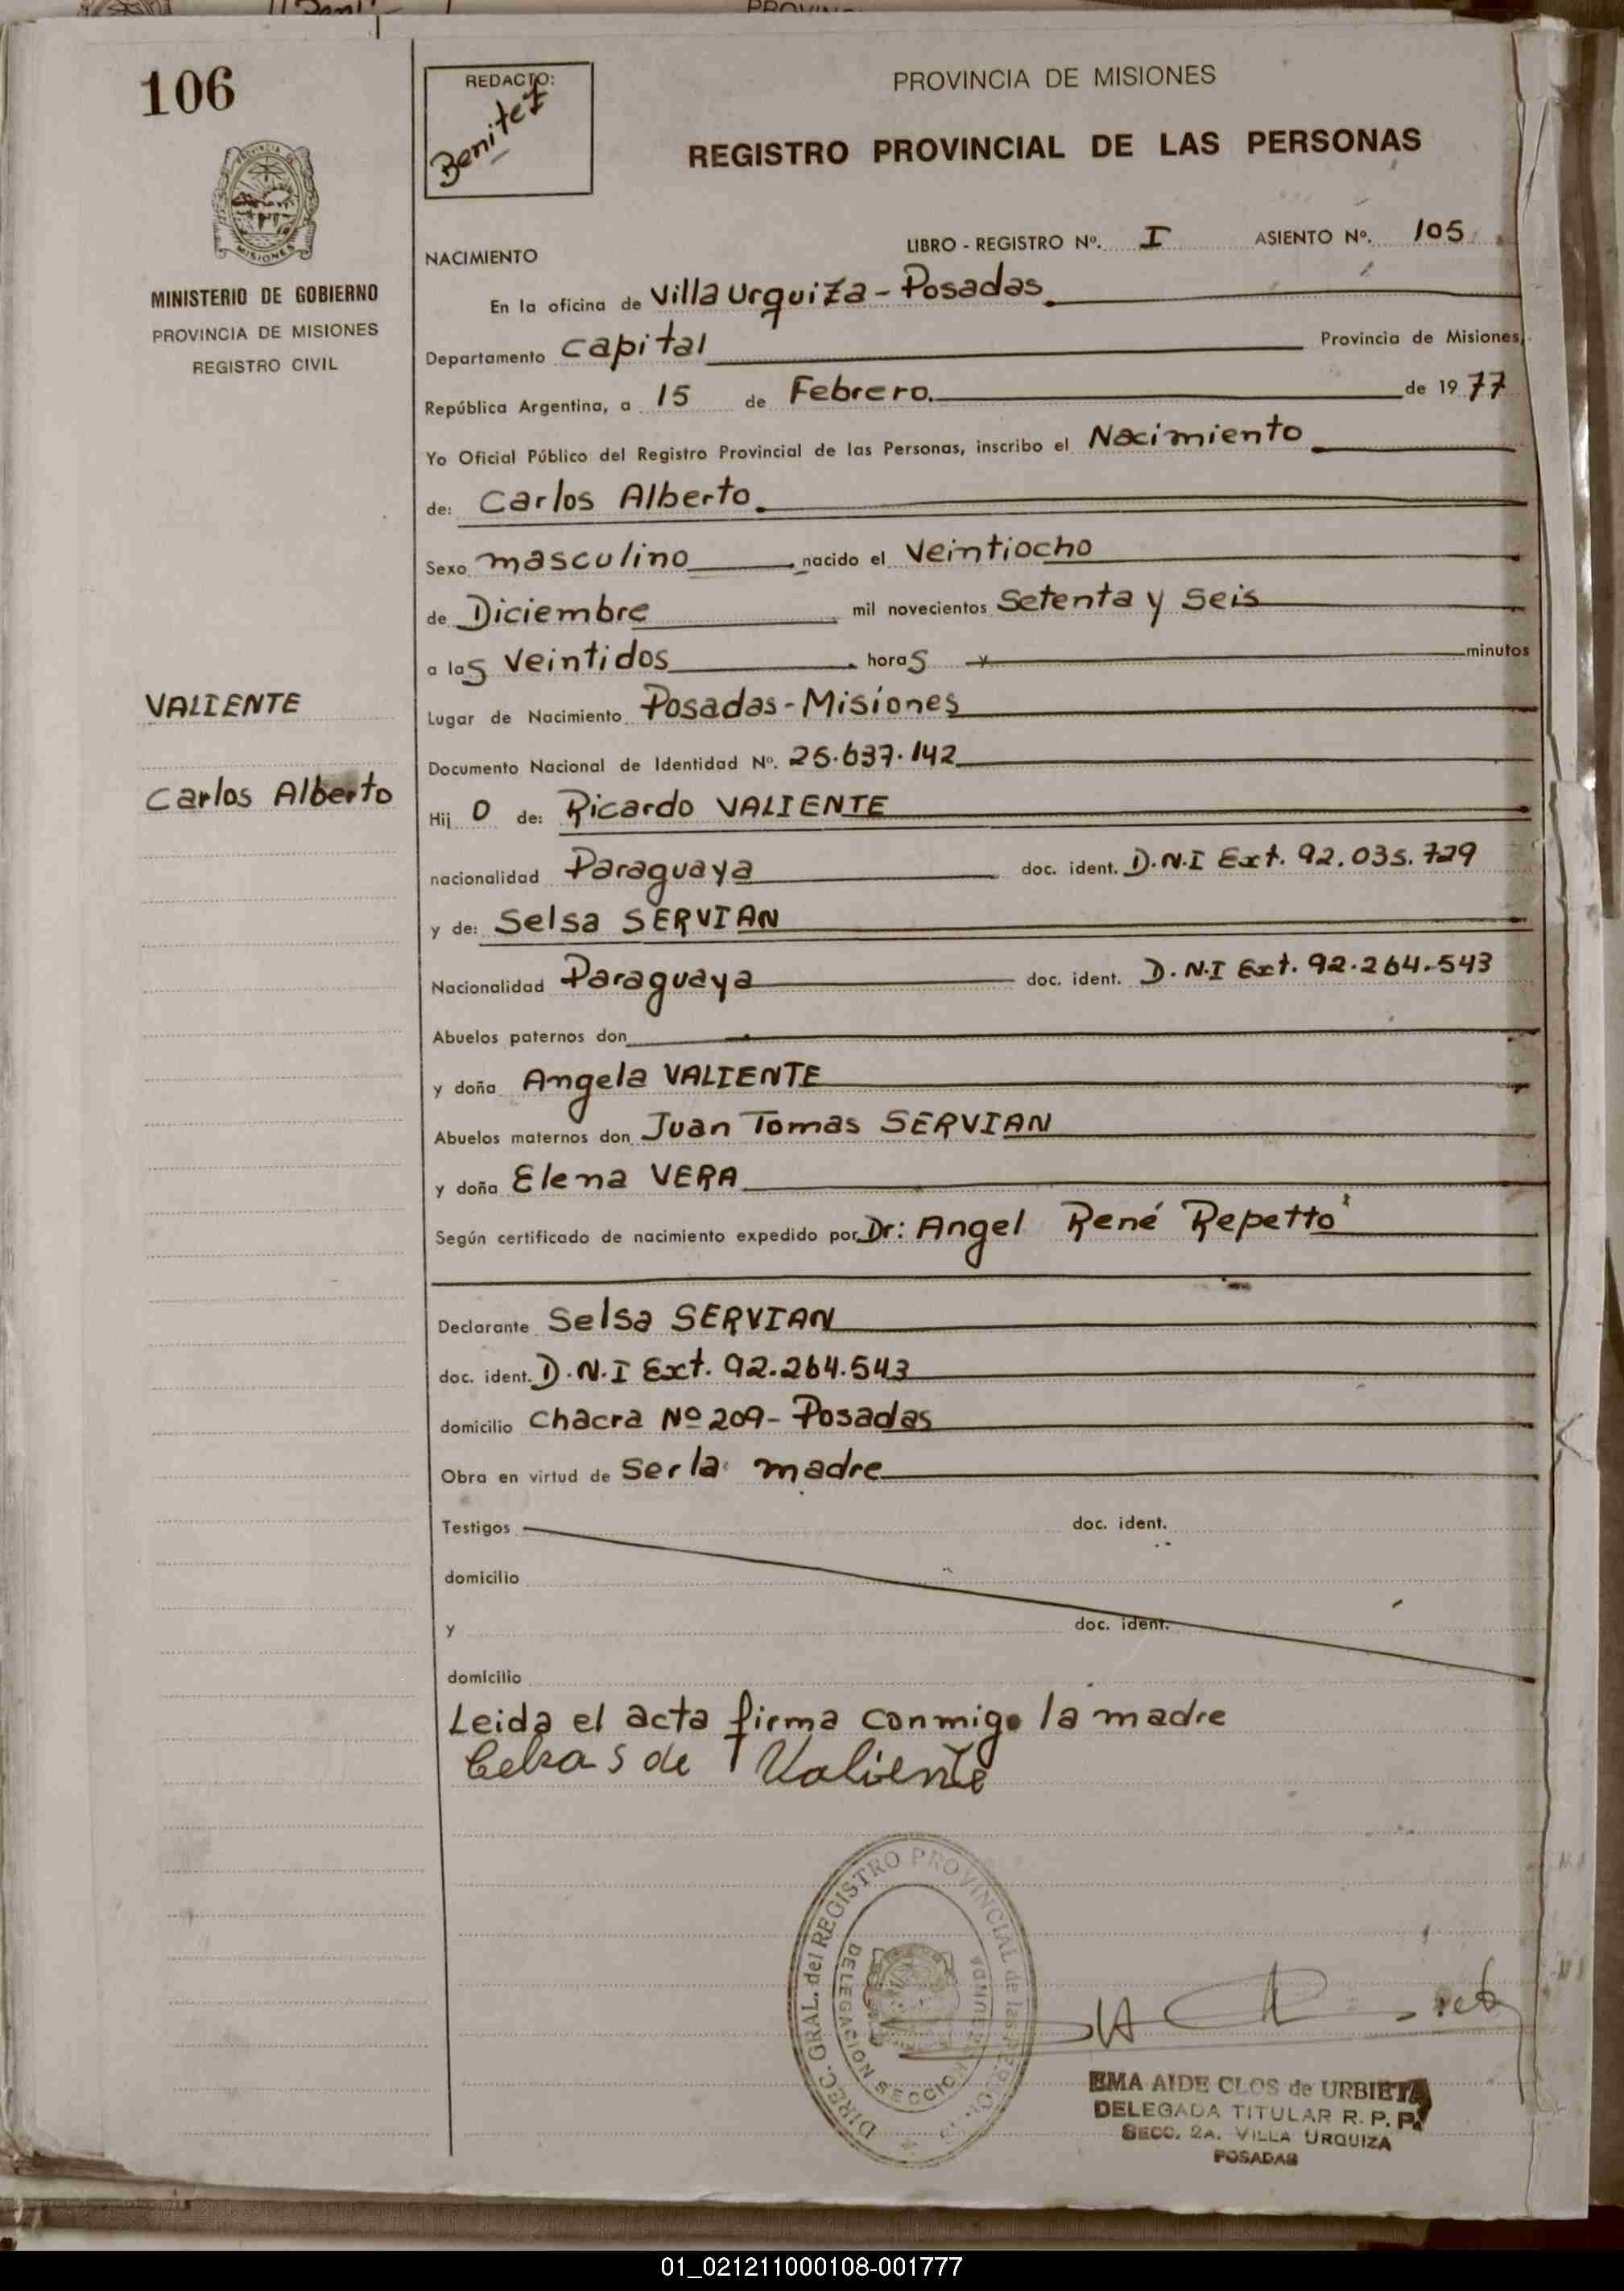 106
REDACTO:
Benitez
PROVINCIA DE MISIONES
REGISTRO PROVINCIAL DE LAS PERSONAS
MISIONES
MINISTERIO DE GOBIERNO
PROVINCIA DE MISIONES
REGISTRO CIVIL
NACIMIENTO LIBRO - REGISTRO Nº. I ASIENTO Nº. 105
En la oficina de Villa Urquiza - Posadas
Departamento capital Provincia de Misiones,
República Argentina, a 15 de Febrero. de 1977
Yo Oficial Público del Registro Provincial de las Personas, inscribo el Nacimiento
de: Carlos Alberto
Sexo masculino nacido el Veintiocho
de Diciembre mil novecientos Setenta y Seis
a las Veintidos horas y minutos
VALIENTE
Carlos Alberto
Lugar de Nacimiento Posadas - Misiones
Documento Nacional de Identidad Nº. 25.637.142
Hij o de: Ricardo VALIENTE
nacionalidad Paraguaya doc. ident. D.N.I Ext. 92.035.729
y de: Selsa SERVIAN
Nacionalidad Paraguaya doc. ident. D.N.I Ext. 92.264.543
Abuelos paternos don
y doña Angela VALIENTE
Abuelos maternos don Juan Tomas SERVIAN
y doña Elena VERA
Según certificado de nacimiento expedido por Dr: Angel René Repetto
Declarante Selsa SERVIAN
doc. ident. D.N.I Ext. 92.264.543
domicilio Chacra Nº 209 - Posadas
Obra en virtud de Ser la madre
Testigos doc. ident.
domicilio
y doc. ident.
domicilio
Leida el acta firma conmigo la madre
S de Valiente
DIREC. GRAL. del REGISTRO PROVINCIAL de las
DELEGACION SECCION
EMA AIDE CLOS de URBIETA
DELEGADA TITULAR R. P. P.
SECC. 2A. VILLA URQUIZA
POSADAS
01_021211000108-001777